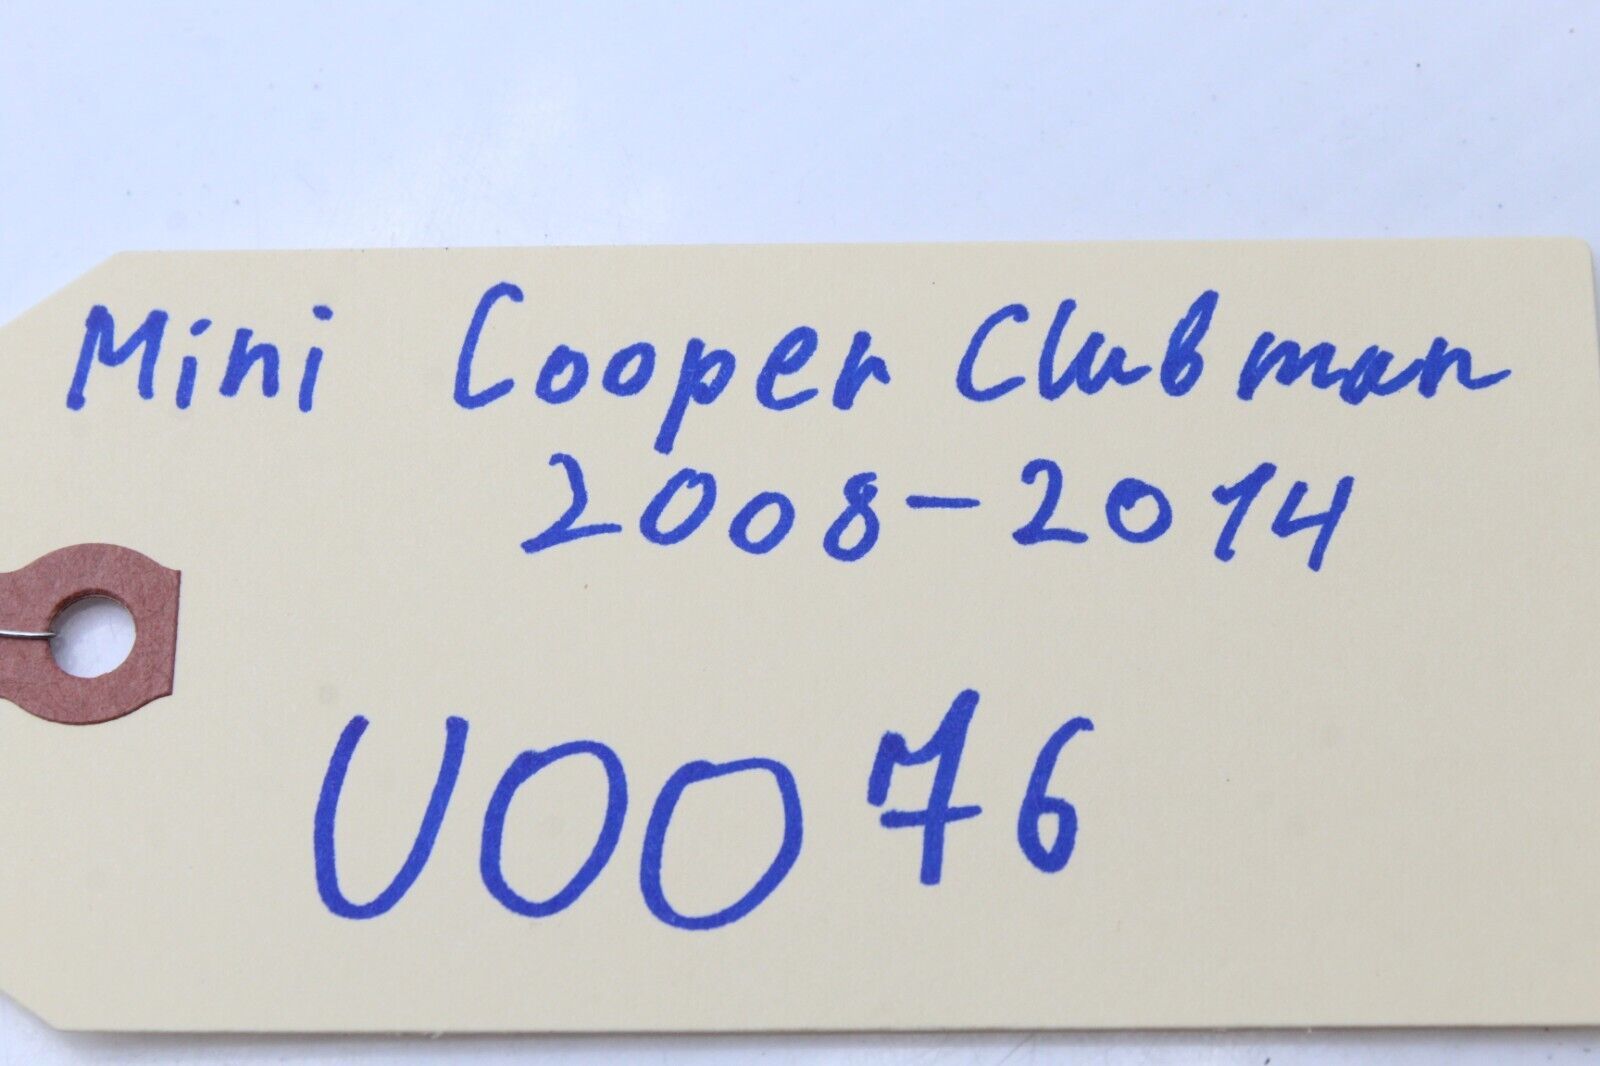 Mini Cooper Clubman
2008-2014
U0076